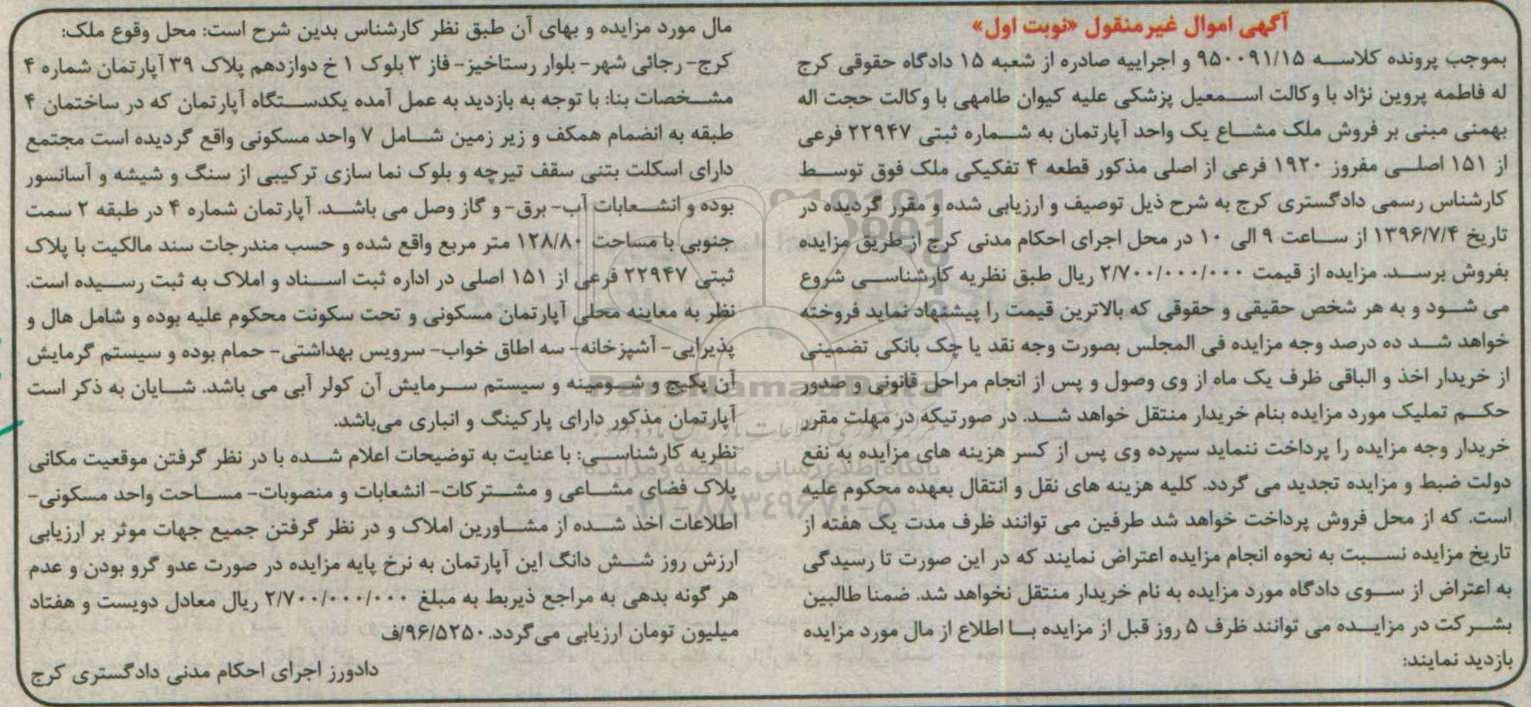 آگهی اموال غیرمنقول «نوبت اول»
بموجب پرونده کلاسه ۹۵۰۰۹۱/۱۵ و اجراییه صادره از شعبه ۱۵ دادگاه حقوقی کرج
له فاطمه پروین نژاد با وکالت اسمعیل پزشکی علیه کیوان طامهی با وکالت حجت اله
بهمنی مبنی بر فروش ملک مشاع یک واحد آپارتمان به شماره ثبتی ۲۲۹۴۷ فرعی
از ۱۵۱ اصلی مفروز ۱۹۲۰ فرعی از اصلی مذکور قطعه ۴ تفکیکی ملک فوق توسط
کارشناس رسمی دادگستری کرج به شرح ذیل توصیف و ارزیابی شده و مقرر گردیده در
تاریخ ۱۳۹۶/۷/۴ از ساعت ۹ الی ۱۰ در محل اجرای احکام مدنی کرج از طریق مزایده
بفروش برسد. مزایده از قیمت ۲/۷۰۰/۰۰۰/۰۰۰ ریال طبق نظریه کارشناسی شروع
می شود و به هر شخص حقیقی و حقوقی که بالاترین قیمت را پیشنهاد نماید فروخته
خواهد شد ده درصد وجه مزایده فی المجلس بصورت وجه نقد یا چک بانکی تضمینی
از خریدار اخذ و الباقی ظرف یک ماه از وی وصول و پس از انجام مراحل قانونی و صدور
حکم تملیک مورد مزایده بنام خریدار منتقل خواهد شد. در صورتیکه در مهلت مقرر
خریدار وجه مزایده را پرداخت ننماید سپرده وی پس از کسر هزینه های مزایده به نفع
دولت ضبط و مزایده تجدید می گردد. کلیه هزینه های نقل و انتقال بعهده محکوم علیه
است. که از محل فروش پرداخت خواهد شد طرفین می توانند ظرف مدت یک هفته از
تاریخ مزایده نسبت به نحوه انجام مزایده اعتراض نمایند که در این صورت تا رسیدگی
به اعتراض از سوی دادگاه مورد مزایده به نام خریدار منتقل نخواهد شد. ضمنا طالبین
بشرکت در مزایده می توانند ظرف ۵ روز قبل از مزایده با اطلاع از مال مورد مزایده
بازدید نمایند:
مال مورد مزایده و بهای آن طبق نظر کارشناس بدین شرح است: محل وقوع ملک:
کرج- رجائی شهر- بلوار رستاخیز- فاز ۳ بلوک ۱ خ دوازدهم پلاک ۳۹ آپارتمان شماره ۴
مشخصات بنا: با توجه به بازدید به عمل آمده یکدستگاه آپارتمان که در ساختمان ۴
طبقه به انضمام همکف و زیر زمین شامل ۷ واحد مسکونی واقع گردیده است مجتمع
دارای اسکلت بتنی سقف تیرچه و بلوک نما سازی ترکیبی از سنگ و شیشه و آسانسور
بوده و انشعابات آب- برق- و گاز وصل می باشد. آپارتمان شماره ۴ در طبقه ۲ سمت
جنوبی با مساحت ۱۲۸/۸۰ متر مربع واقع شده و حسب مندرجات سند مالکیت با پلاک
ثبتی ۲۲۹۴۷ فرعی از ۱۵۱ اصلی در اداره ثبت اسناد و املاک به ثبت رسیده است.
نظر به معاینه محلی آپارتمان مسکونی و تحت سکونت محکوم علیه بوده و شامل هال و
پذیرایی- آشپزخانه- سه اطاق خواب- سرویس بهداشتی- حمام بوده و سیستم گرمایش
آن پکیج و شومینه و سیستم سرمایش آن کولر آبی می باشد. شایان به ذکر است
آپارتمان مذکور دارای پارکینگ و انباری می‌باشد.
نظریه کارشناسی: با عنایت به توضیحات اعلام شده با در نظر گرفتن موقعیت مکانی
پلاک فضای مشاعی و مشترکات- انشعابات و منصوبات- مساحت واحد مسکونی-
اطلاعات اخذ شده از مشاورین املاک و در نظر گرفتن جمیع جهات موثر بر ارزیابی
ارزش روز شش دانگ این آپارتمان به نرخ پایه مزایده در صورت عدو گرو بودن و عدم
هر گونه بدهی به مراجع ذیربط به مبلغ ۲/۷۰۰/۰۰۰/۰۰۰ ریال معادل دویست و هفتاد
میلیون تومان ارزیابی می‌گردد. ۹۶/۵۲۵۰/ف
دادورز اجرای احکام مدنی دادگستری کرج
ParsNamadData
پایگاه اطلاع رسانی مناقصه و مزایده
۰۲۱-۸۸۳۴۹۶۷۰-۵